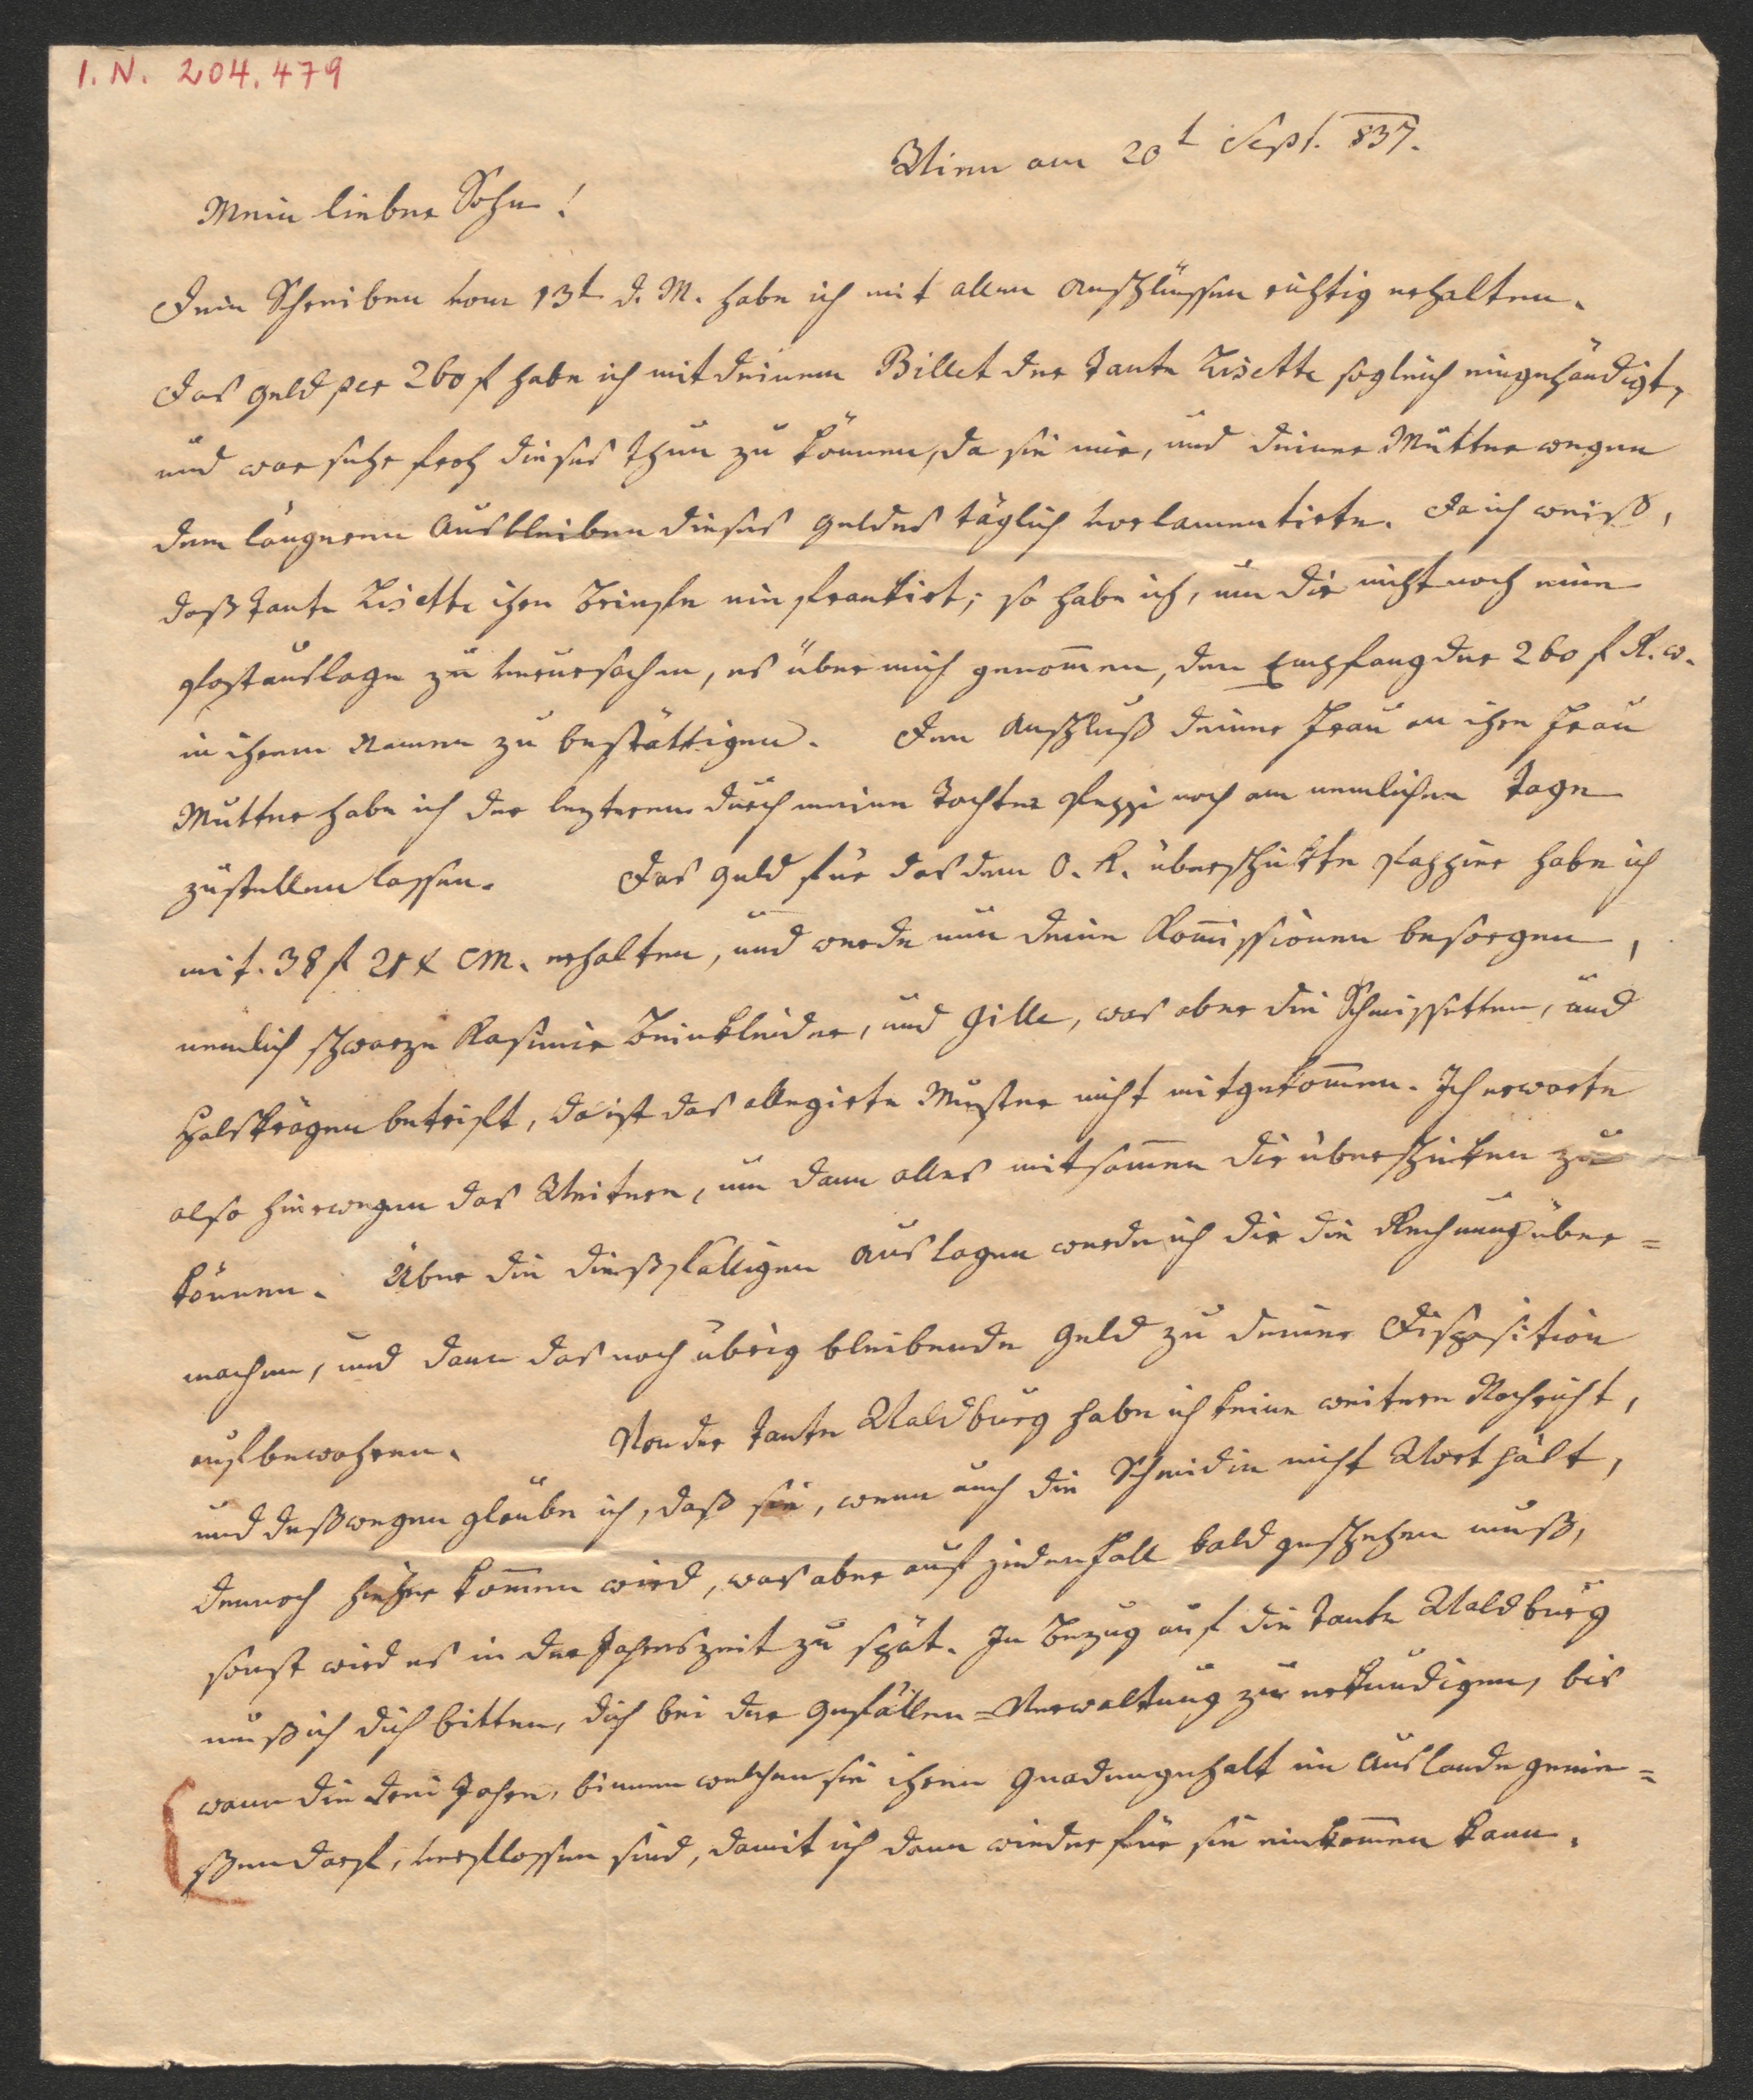 I.N. 204.479
Wien am 20t Sept. 837.
Mein lieber Sohn!
Dein Schreiben vom 13t d. M. habe ich mit allen Anschlüssen richtig erhalten.
Das Geld per 260 f habe ich mit deinem Billet der Tante Lisette sogleich eingehändigt,
und war sehr froh dieses thun zu können, da sie mir, und deiner Mutter wegen
dem längeren Ausbleiben dieses Geldes täglich vorlamentirte. Da ich weiß,
daß Tante Lisette ihre Briefe nie frankirt; so habe ich, um dir nicht noch eine
Postauslage zu verursachen, es über mich genom̅en, den Empfang der 260 f R. W.
in ihrem Namen zu bestättigen. Den Anschluß deiner Frau an ihre Frau
Mutter habe ich der lezteren durch meine Tochter Peppi noch am nemlichen Tage
zustellen lassen. Das Geld für das dem O. K. überschikte Pappier habe ich
mit 38 f 21 x CM. erhalten, und werde nun deine Kom̅issionen besorgen,
nemlich schwarze Kasimir Beinkleider, und Gille, was aber die Schmissetten, und
Halskrägen betrift, da ist das allegirte Muster nicht mitgekom̅en. Ich erwarte
also hierwegen das Weitere, um dann alles mitsam̅en dir überschiken zu
können. Über die dießfälligen Auslagen werde ich dir die Rechnung über=
machen, und dann das noch übrig bleibende Geld zu deiner Disposition
aufbewahren. Von der Tante Waldburg habe ich keine weitere Nachricht,
und deßwegen glaube ich, daß sie, wenn auch die Schmidin nicht Wort hält,
dennoch hieher kom̅en wird, was aber auf jeden Fall bald geschehen muß,
sonst wird es in der Jahrszeit zu spät. In Bezug auf die Tante Waldburg
muß ich dich bitten, dich bei der Gefällen=Verwaltung zu erkundigen, bis
wann die drei Jahre, binnen welchen sie ihren Gnadengehalt im Auslande genie=
ßen darf, verflossen sind, damit ich dann wieder für sie einkom̅en kann.